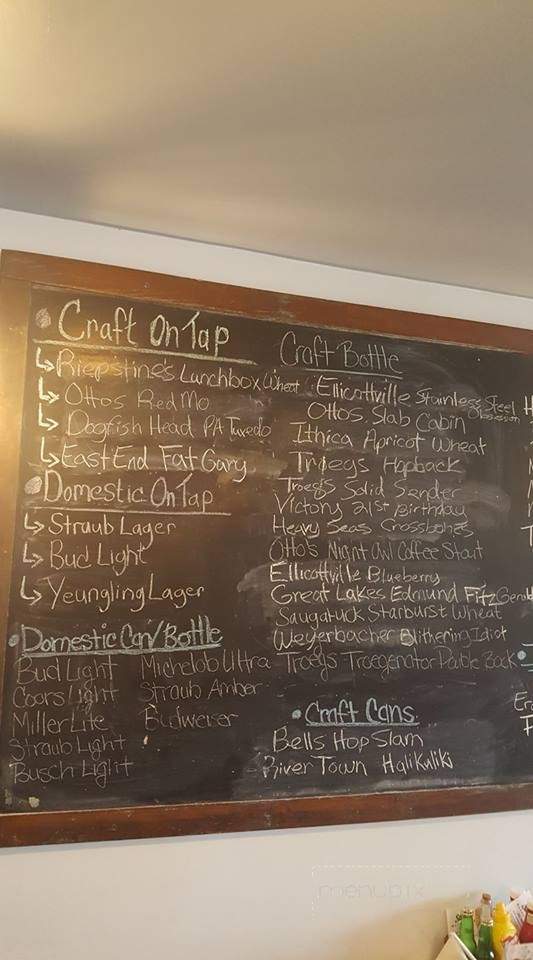 Craft On Tap
Riepstine's Lunchbox Wheat
Ottos Red Mo
Dogfish Head PA Tuxedo
East End Fat Gary
Domestic On Tap
Straub Lager
Bud Light
Yeungling Lager
Domestic Can/Bottle
Bud Light Michelob Ultra
Coors Light Straub Amber
Miller Lite Budweiser
Straub Light
Busch Light
Craft Bottle
Ellicottville Stainless Steel
Obsession
Ottos Slab Cabin
Ithica Apricot Wheat
Troegs Hopback
Troegs Solid Sender
Victory 21st Birthday
Heavy Seas Crossbones
Otto's Night Owl Coffee Stout
Ellicottville Blueberry
Great Lakes Edmund Fitz
Saugatuck Starburst Wheat
Weyerbacher Blithering Idiot
Troegs Troegenator Double Bock
Craft Cans
Bells Hop Slam
River Town Halikuliki
menupix